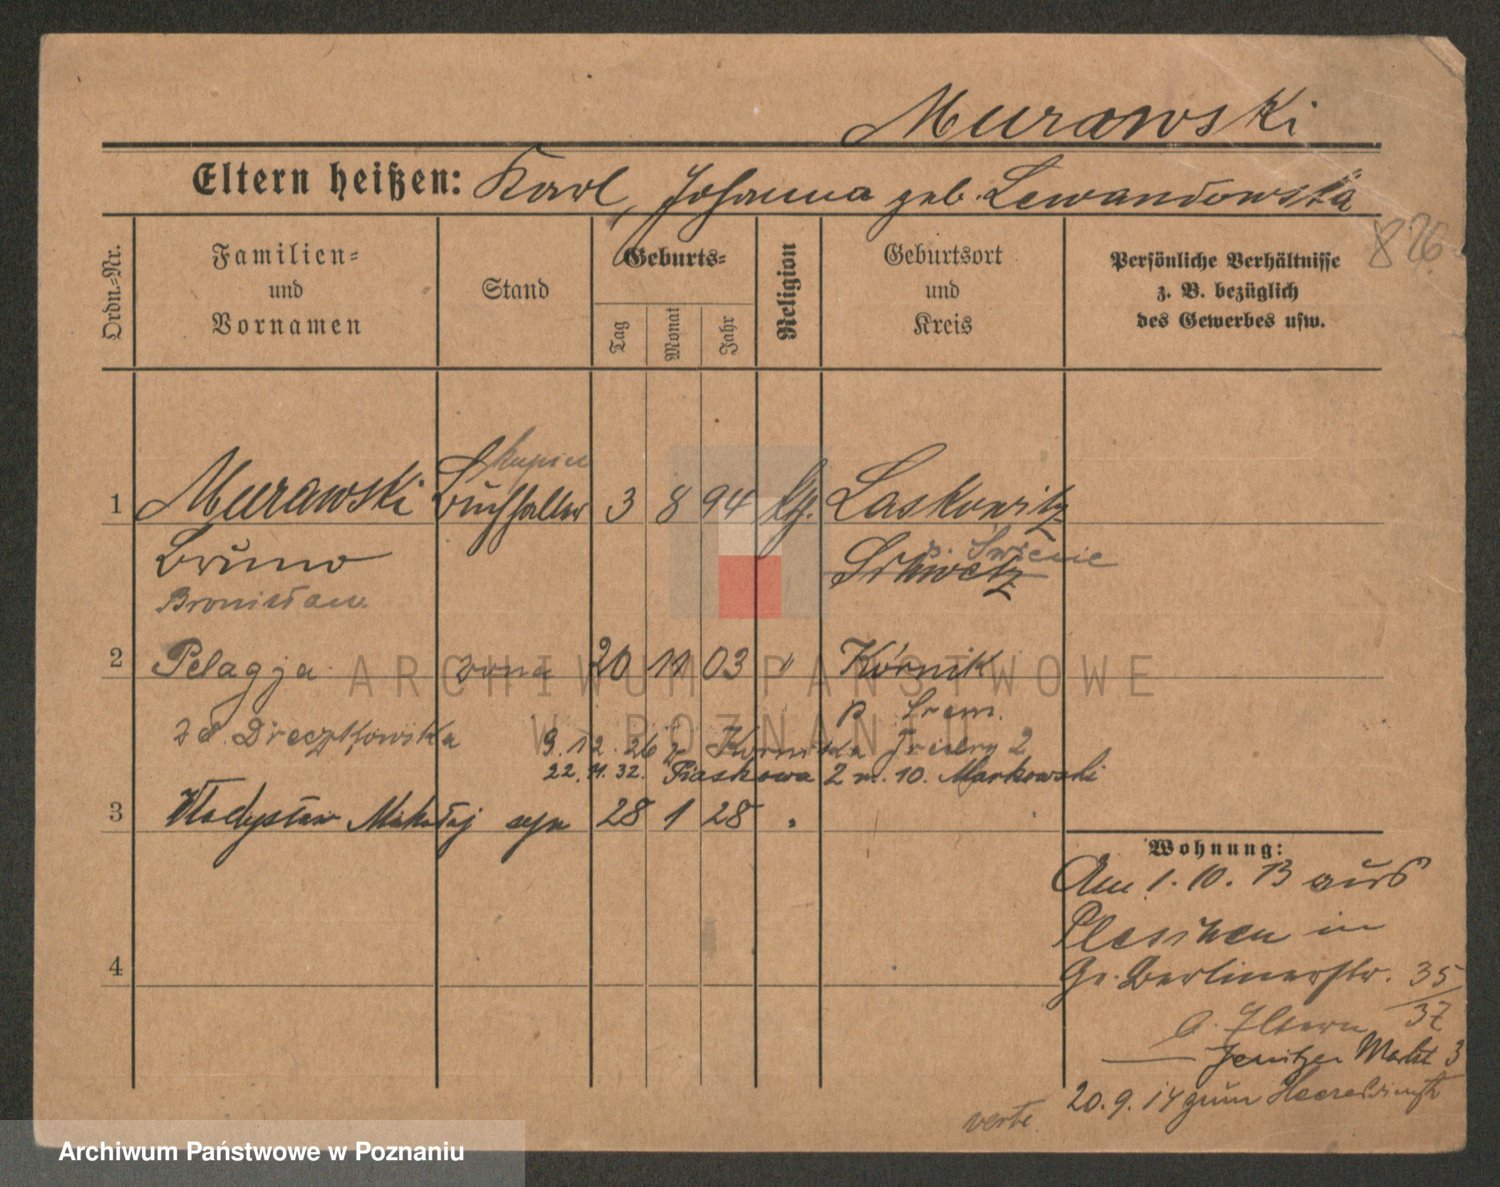 Murawski
Eltern heißen: Karl, Johanna geb. Lewandowska
876
Ordn.-Nr.
Familien- und Vornamen
Stand
Geburts-
Tag
Monat
Jahr
Religion
Geburtsort und Kreis
Persönliche Verhältnisse
z. B. bezüglich
des Gewerbes usw.
kupiec
1 Murawski Buchhalter 3 8 94 kth. Laskowitz
Bruno Schwetz p. Świecie
Bronisław
2 Pelagja żona 20 11 03 " Kórnik
p. Śrem.
zd. Dreczkowska 9.12.26 z Kórnika
22. 11. 32. Piaskowa 2 m. 10. Markowski
3 Władysław Mikołaj syn 28 1 28 "
4
Wohnung:
Am 1.10.13 aus
Pleschen in
Gr. Berlinerstr. 35/37
b. Eltern
Jersitzer Markt 3
20.9.14 zum Heeresdienst
verte
ARCHIWUM PAŃSTWOWE
W POZNANIU
Archiwum Państwowe w Poznaniu